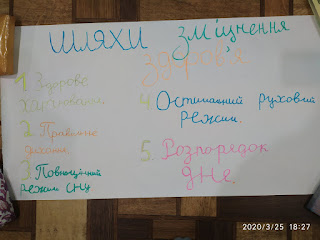 ШЛЯХИ зміцнення
здоров'я.
1 Здорове
харчування
2. Правильне
дихання.
3. Повноцінний
режим сну
4. Оптимальний руховий
режим.
5. Розпорядок
дня.
2020/3/25 18:27